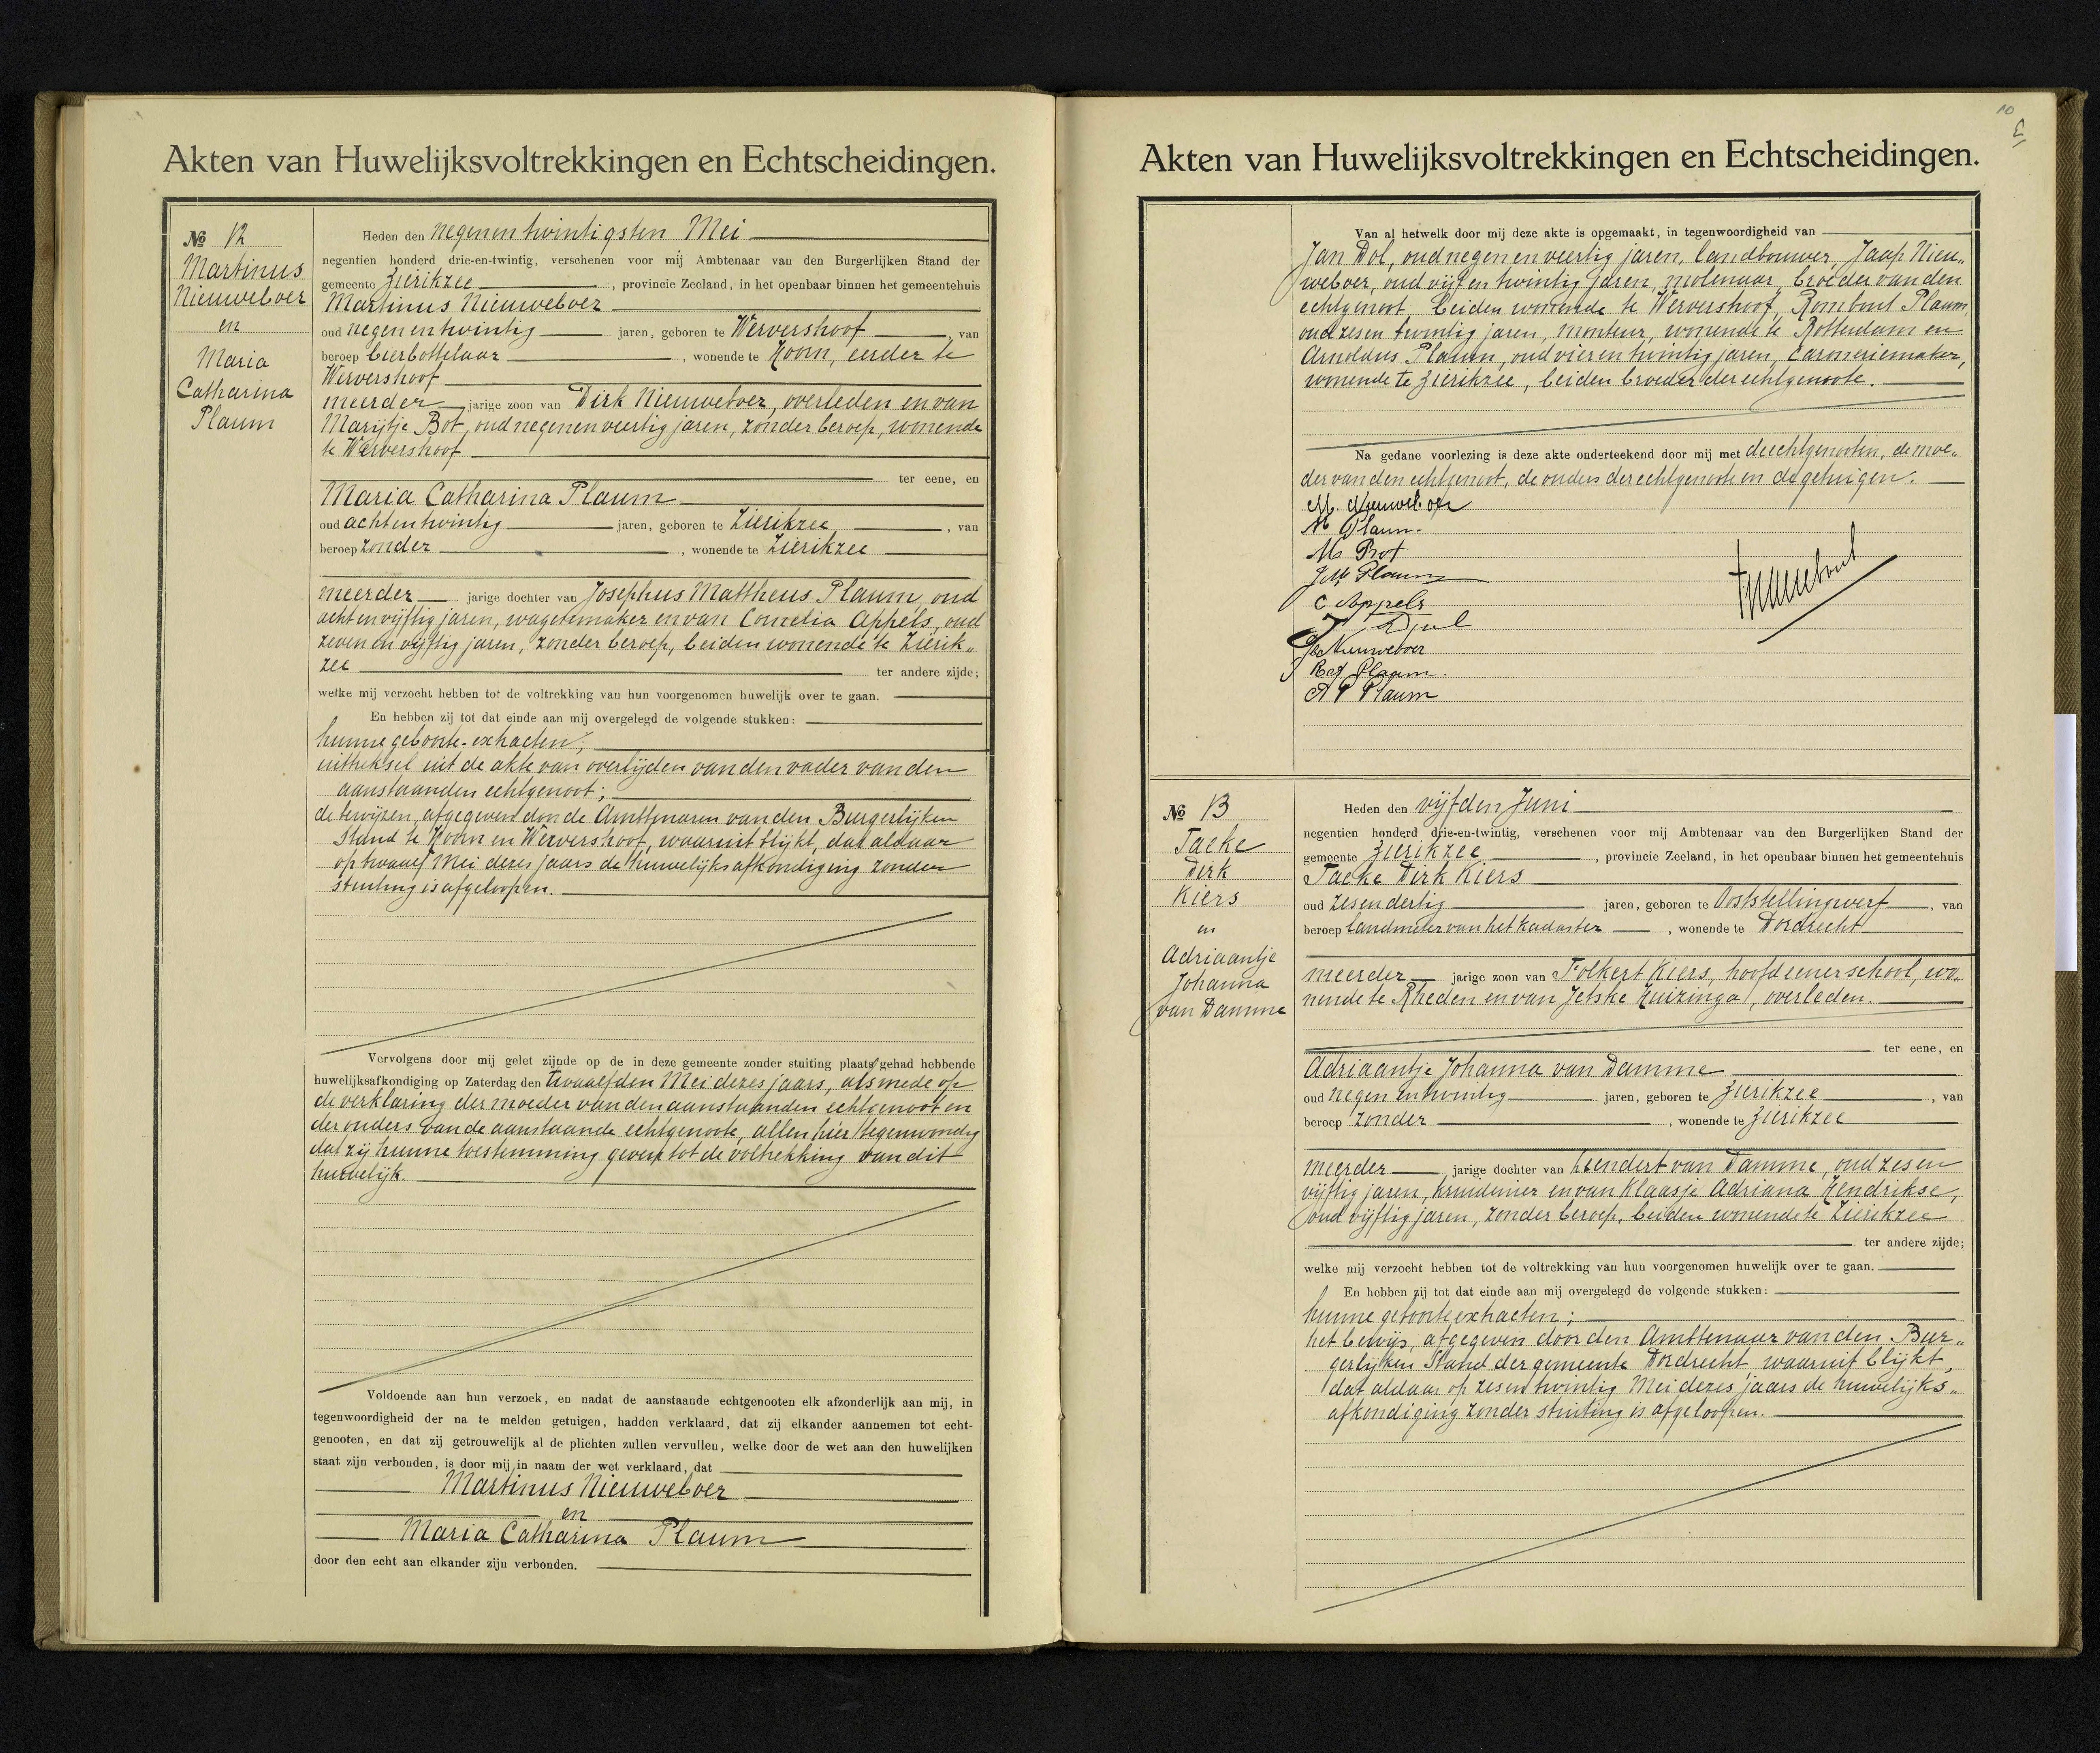 Akten van Huwelijksvoltrekkingen en Echtscheidingen.
No 12
Martinus
Nieuweboer
en
Maria
Catharina
Plaum
Heden den negenentwintigsten Mei
negentien honderd drie-en-twintig, verschenen voor mij Ambtenaar van den Burgerlijken Stand der
gemeente Zierikzee, provincie Zeeland, in het openbaar binnen het gemeentehuis
Martinus Nieuweboer
oud negenentwintig jaren, geboren te Wervershoof, van
beroep bierbottelaar, wonende te Hoorn, eerder te
Wervershoof
meerder jarige zoon van Dirk Nieuweboer, overleden en van
Marijtje Bot, oud negenenveertig jaren, zonder beroep, wonende
te Wervershoof
ter eene, en
Maria Catharina Plaum
oud achtentwintig jaren, geboren te Zierikzee, van
beroep zonder, wonende te Zierikzee
meerder jarige dochter van Josephus Mattheus Plaum, oud
achtenvijftig jaren, wagenmaker en van Cornelia Appels, oud
zeven en vijftig jaren, zonder beroep, beiden wonende te Zierik„
zee ter andere zijde;
welke mij verzocht hebben tot de voltrekking van hun voorgenomen huwelijk over te gaan.
En hebben zij tot dat einde aan mij overgelegd de volgende stukken:
hunne geboorte-extracten;
uittreksel uit de akte van overlijden van den vader van den
aanstaanden echtgenoot;
de bewijzen, afgegeven door de Ambtenaren van den Burgerlijken
Stand te Hoorn en Wervershoof, waaruit blijkt, dat aldaar
op twaalf Mei dezes jaars de huwelijksafkondiging zonder
stuiting is afgeloopen.
Vervolgens door mij gelet zijnde op de in deze gemeente zonder stuiting plaats gehad hebbende
huwelijksafkondiging op Zaterdag den twaalfden Mei dezes jaars, alsmede op
de verklaring der moeder van den aanstaanden echtgenoot en
der ouders van de aanstaande echtgenoote, allen hier tegenwoordig
dat zij hunne toestemming geven tot de voltrekking van dit
huwelijk.
Voldoende aan hun verzoek, en nadat de aanstaande echtgenooten elk afzonderlijk aan mij, in
tegenwoordigheid der na te melden getuigen, hadden verklaard, dat zij elkander aannemen tot echt-
genooten, en dat zij getrouwelijk al de plichten zullen vervullen, welke door de wet aan den huwelijken
staat zijn verbonden, is door mij in naam der wet verklaard, dat
Martinus Nieuweboer
en
Maria Catharina Plaum
door den echt aan elkander zijn verbonden.
10
Akten van Huwelijksvoltrekkingen en Echtscheidingen.
Van al hetwelk door mij deze akte is opgemaakt, in tegenwoordigheid van
Jan Dol, oud negenenveertig jaren, landbouwer, Jaap Nieu„
weboer, oud vijf en twintig jaren, molenaar, broeder van den
echtgenoot, beiden wonende te Wervershoof, Rombout Plaum,
oud zesen twintig jaren, monteur, wonende te Rotterdam en
Arnoldus Plaum, oud vierentwintig jaren, carosseriemaker,
wonende te Zierikzee, beiden broeder der echtgenoote.
Na gedane voorlezing is deze akte onderteekend door mij met de echtgenooten, de moe„
der van den echtgenoot, de ouders der echtgenoote en de getuigen.
M. Nieuweboer
M Plaum.
M. Bot
J M Plaum
C Appels
J Dol
Jb Nieuweboer
R A Plaum.
A P Plaum
No 13
Taeke
Dirk
Kiers
en
Adriaantje
Johanna
van Damme
Heden den vijfden Juni
negentien honderd drie-en-twintig, verschenen voor mij Ambtenaar van den Burgerlijken Stand der
gemeente Zierikzee, provincie Zeeland, in het openbaar binnen het gemeentehuis
Taeke Dirk Kiers
oud zesendertig jaren, geboren te Ooststellingwerf, van
beroep landmeter van het kadaster, wonende te Dordrecht
meerder jarige zoon van Folkert Kiers, hoofd eener school, wo„
nende te Rheden en van Jetske Huizinga, overleden.
ter eene, en
Adriaantje Johanna van Damme
oud negen en twintig jaren, geboren te Zierikzee, van
beroep zonder, wonende te Zierikzee
meerder jarige dochter van Leendert van Damme, oud zesen
vijftig jaren, kruidenier en van Klaasje Adriana Hendrikse,
oud vijftig jaren, zonder beroep, beiden wonende te Zierikzee
ter andere zijde;
welke mij verzocht hebben tot de voltrekking van hun voorgenomen huwelijk over te gaan.
En hebben zij tot dat einde aan mij overgelegd de volgende stukken:
hunne geboorteextracten;
het bewijs, afgegeven door den Ambtenaar van den Bur„
gerlijken Stand der gemeente Dordrecht, waaruit blijkt,
dat aldaar op zesentwintig Mei dezes jaars de huwelijks„
afkondiging zonder stuiting is afgeloopen.